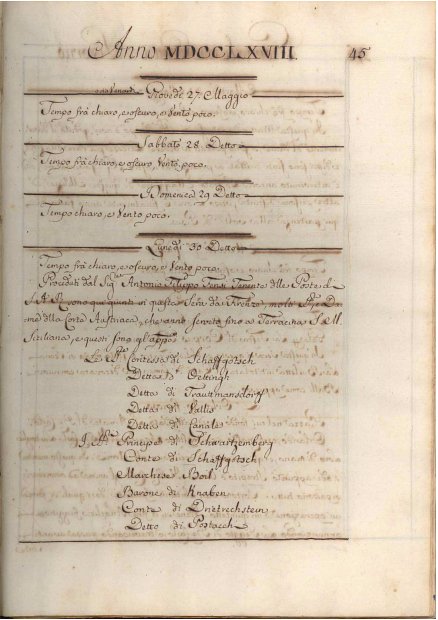 Anno MDCCLXVIII. 45
Giovedì 27. Maggio
Tempo frà chiaro, e oscuro, e Vento poco.
Sabbato 28 Detto
Tempo frà chiaro, e oscuro Vento poco.
Domenica 29 Detto
Tempo chiaro, e Vento poco.
Lunedì 30 Detto
Tempo frà chiaro, e oscuro, e Vento poco.
Preceduti dal Sig.r Antonio Filippo Tensi Tenente delle Poste di
S. A. R. sono qui giunti in questa Sera da Firenze, molte Da-
me della Corte Austriaca, che anno servito fino a Terracina S. M.
Siciliana, e questi sono gl'appo.
Contessa di Schaffgotsch
Detta d' Oettingh
Detta di Trauttmansdorff
Detta di Vallis
Detta di Canale
Principe di Schwartzemberg
Conte di Schaffgotsch
Marchese Boil
Barone di Knaben
Conte di Dnetrechstein
Detto di Postacch